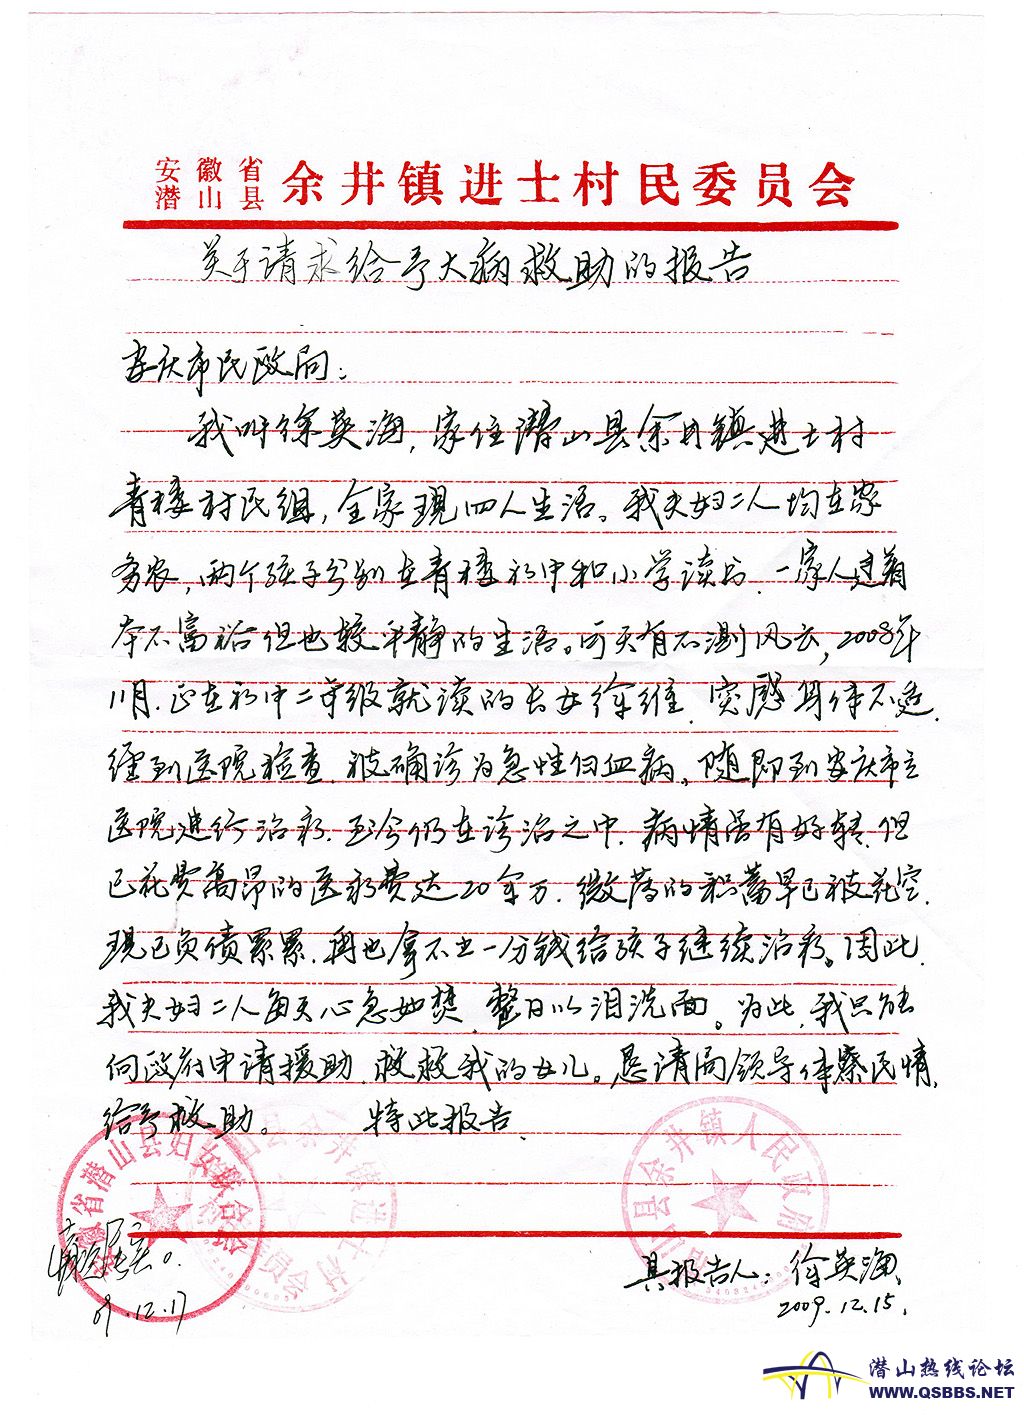 安徽省
潜山县
余井镇进士村民委员会
关于请求给予大病救助的报告
安庆市民政局：
我叫徐英海，家住潜山县余井镇进士村
青楼村民组，全家现四人生活。我夫妇二人均在家
务农，两个孩子分别在青楼初中和小学读书，一家人过着
本不富裕但也较平静的生活。可天有不测风云，2008年
11月，正在初中二年级就读的长女徐维，突感身体不适，
经到医院检查，被确诊为急性白血病。随即到安庆市立
医院进行治疗，至今仍在诊治之中，病情虽有好转，但
已花费高昂的医疗费达20余万，微薄的积蓄早已被花空，
现已负债累累，再也拿不出一分钱给孩子继续治疗。因此，
我夫妇二人每天心急如焚，整日以泪洗面。为此，我只能
向政府申请援助，救救我的女儿。恳请局领导体察民情，
给予救助。 特此报告
安徽省潜山县妇女联合会
山县余井镇进士村
委员会
山县余井镇人民政府
情况属实。
09.12.17
具报告人：徐英海
2009.12.15.
潜山热线论坛
WWW.QSBBS.NET